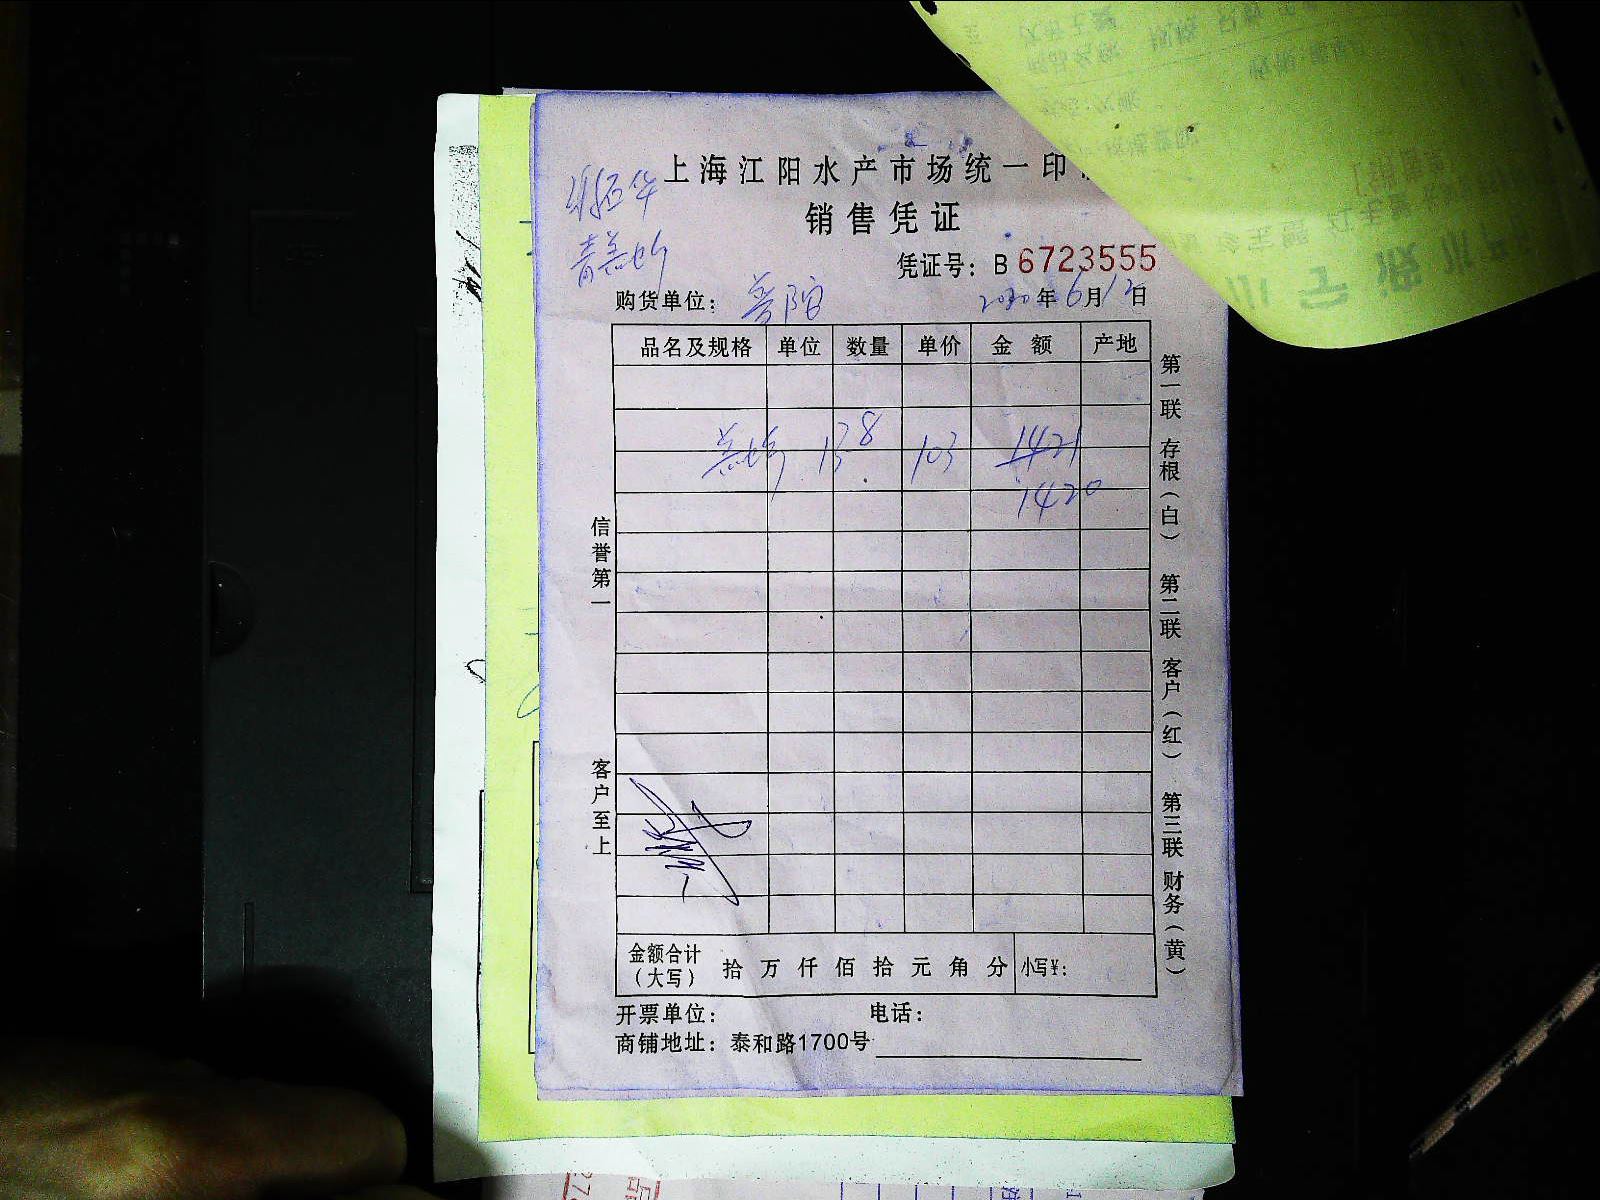 上海江阳水产市场统一印
销售凭证
凭证号：B 6723555
购货单位：普陀 2020年6月12日
品名及规格 单位 数量 单价 金额 产地
13 8 103 1421
1420
信誉第一
客户至上
第一联 存根（白） 第二联 客户（红） 第三联 财务（黄）
金额合计（大写） 拾万仟佰拾元角分 小写¥：
开票单位： 电话：
商铺地址：泰和路1700号